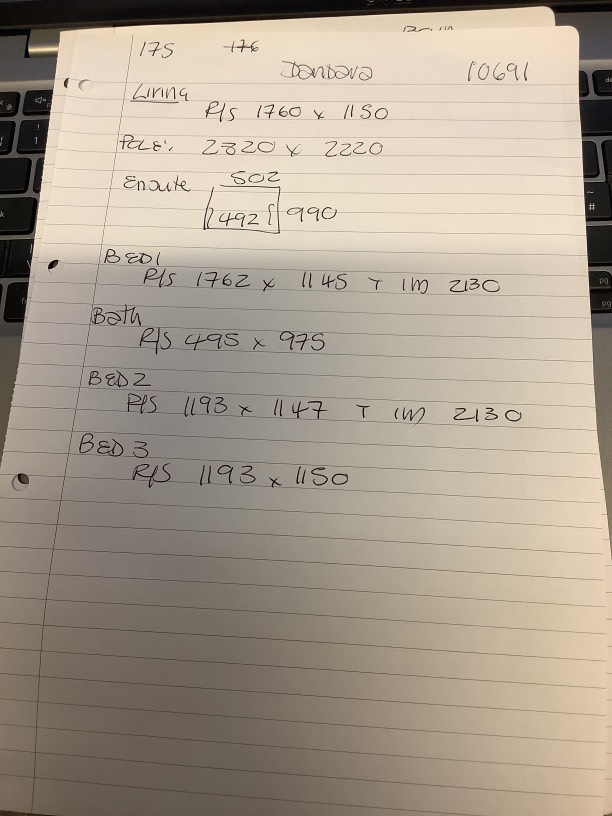 175 176
Dandara 10691
Living
R/S 1760 x 1150
Pole: 2320 x 2220
Ensuite 502
492 990
BED1
R/S 1762 x 1145 T (M) 2130
Bath
R/S 495 x 975
BED2
R/S 1193 x 1147 T (M) 2130
BED 3
R/S 1193 x 1150